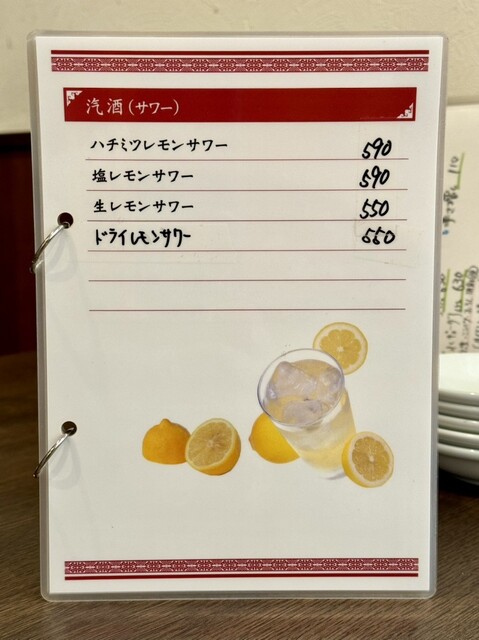 汽酒(サワー)
ハチミツレモンサワー 590
塩レモンサワー 590
生レモンサワー 550
ドライレモンサワー 550
110
630